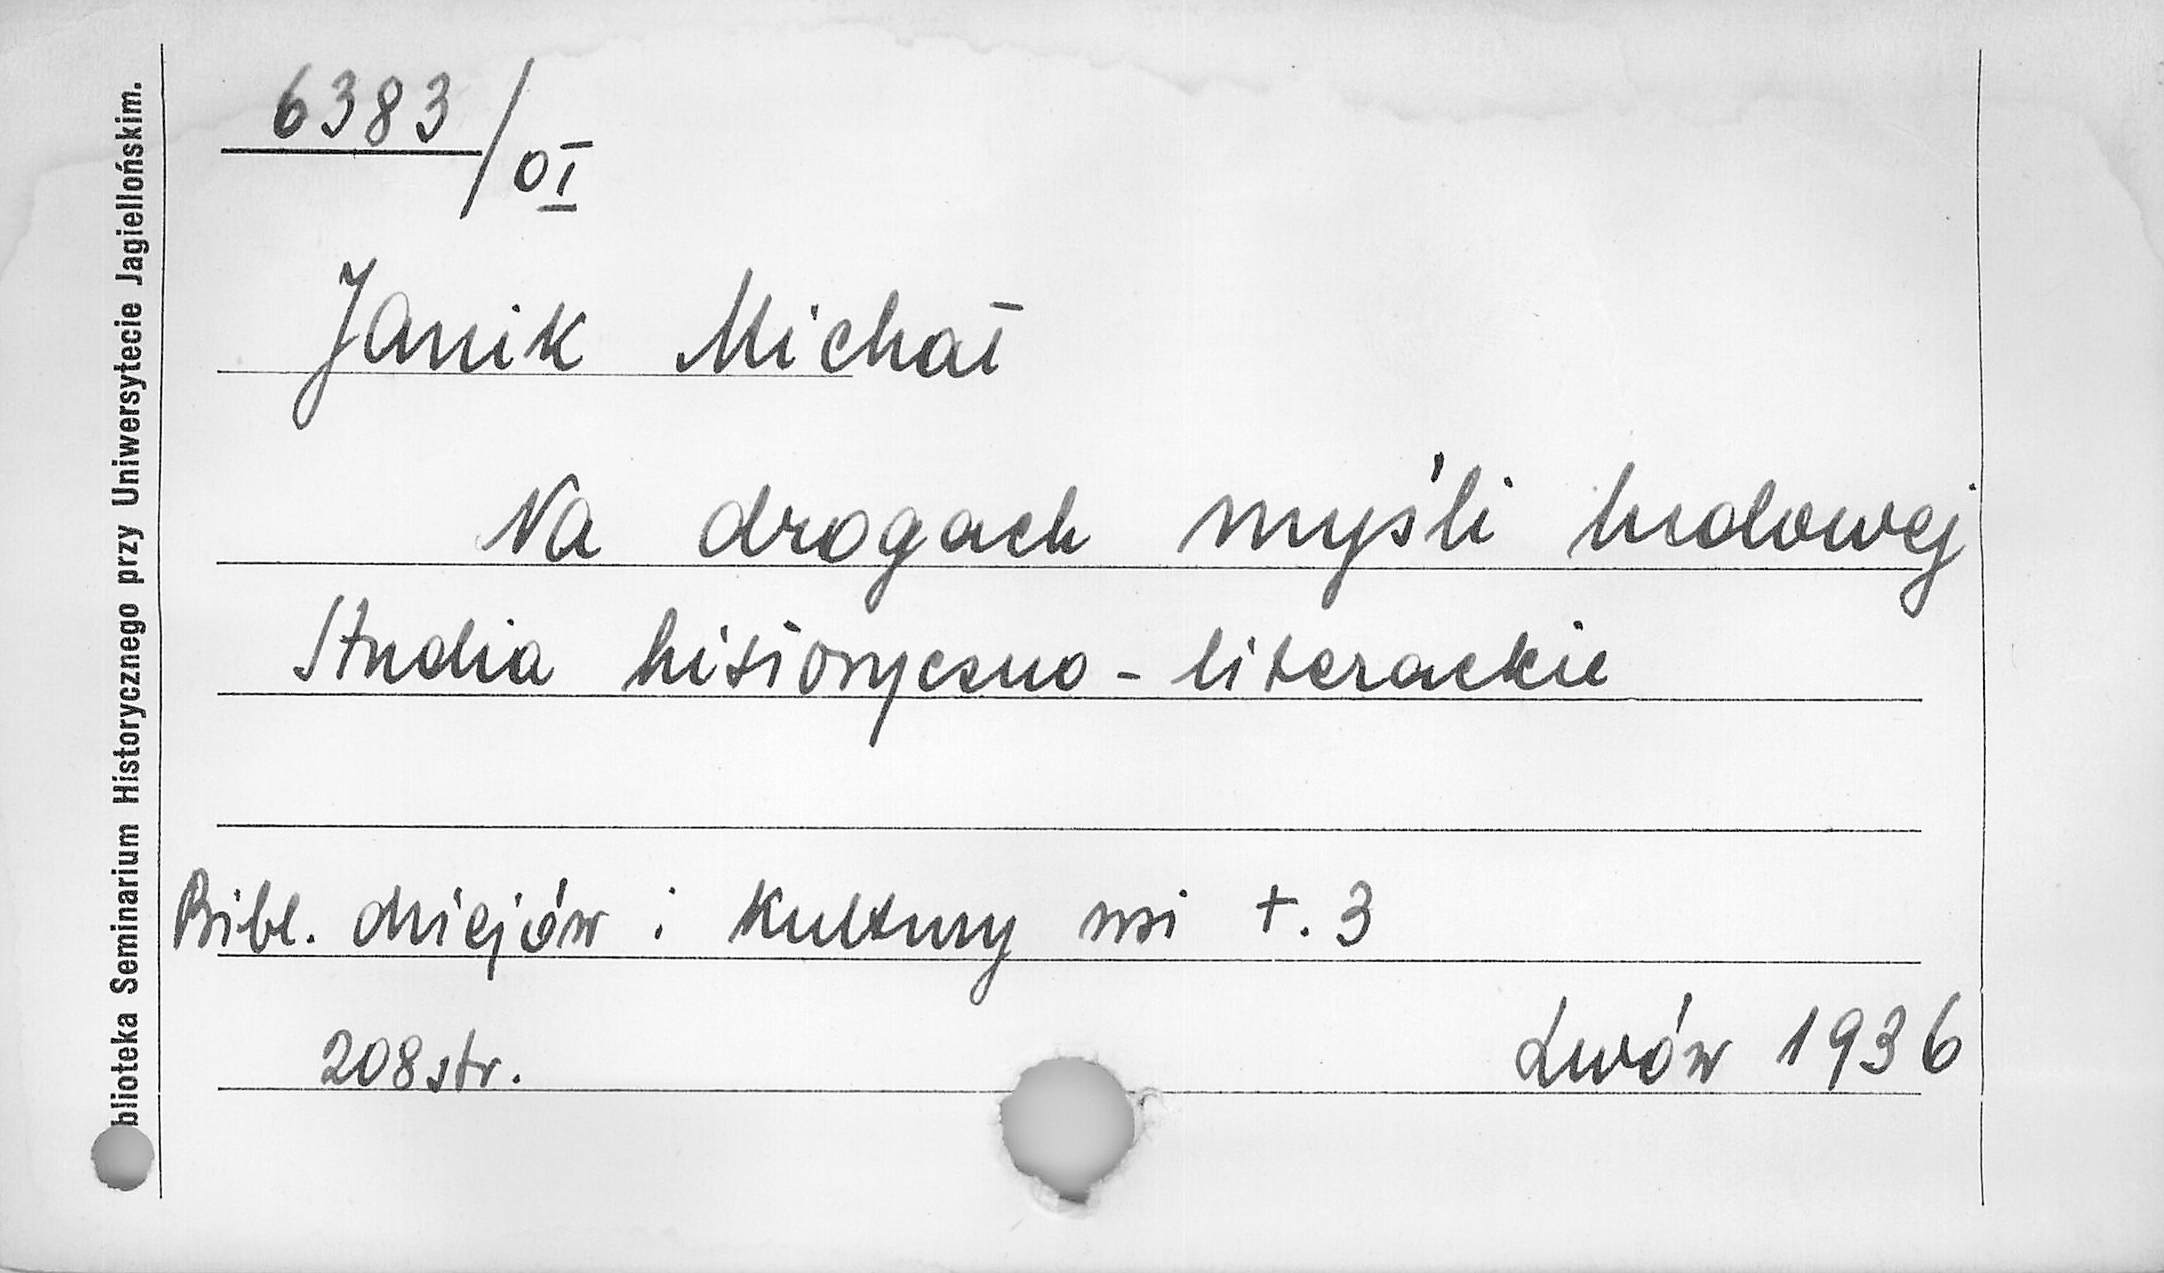 6383/OI
Janik Michał
Na drogach myśli ludowej
Studia historyczno-literackie
Bibl. dziejów i kultury wsi t. 3
208 str.
Lwów 1936
blioteka Seminarium Historycznego przy Uniwersytecie Jagiellońskim.